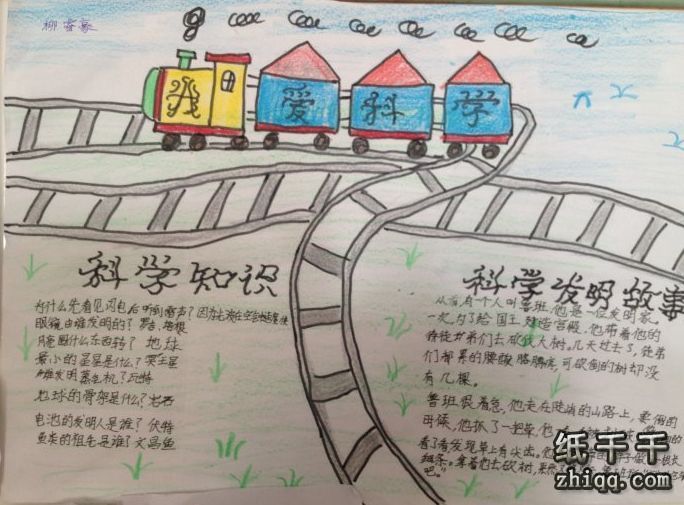 柳
我爱科学
科学知识
科学发明故事
为什么先看见闪电后听到雷声?因为
眼镜由谁发明的?罗吉·培根
月亮围什么东西转?地球
最小的星星是什么?冥王星
谁发明蒸气机?瓦特
地球的骨架是什么?岩石
电池的发明人是谁?伏特
鱼类的祖先是谁?文昌鱼
从前,有一个人叫鲁班,他是一位发明家。
一次,为了给国王建造宫殿,他带着他的
徒弟们去砍伐大树。几天过去了,徒弟
们都累的腰酸胳膊疼,可砍倒的树却没
有几棵。
鲁班很着急,他走在陡峭的山路上,要倒的
时候,他抓了一把草,他
看了看发现草上有尖出。
拿着他去砍树,果然
吧。"
纸千千
zhiqq.com